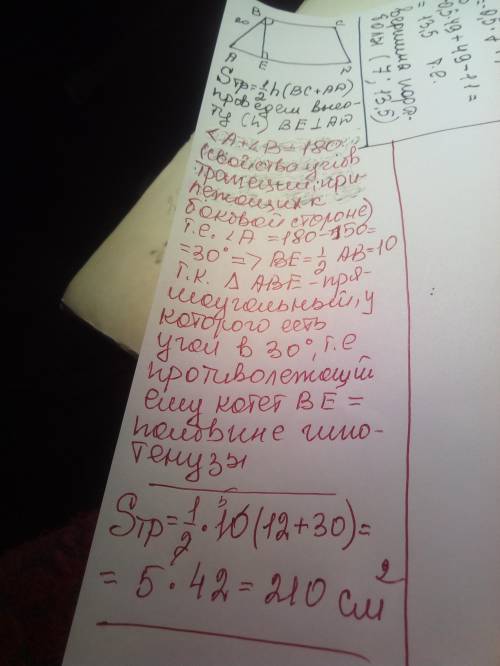 B
C
20
A
E
Sтр=1/2h(BC+AD)
проведем высо-
ту (h) BE⊥AD
∠A+∠B=180
(свойства углов
трапеции, при-
лежащих к
боковой стороне)
т.е. ∠A = 180-150=
=30° => BE=1/2 AB=10
т.к. Δ ABE - пря-
моугольный, у
которого есть
угол в 30°, т.е
противолежащий
ему катет BE =
половине гипо-
тенузы
Sтр=1/2·10(12+30)=
5
=5·42=210 см²
0549+49-11=
=13,5 т.е.
вершина пара-
болы (7; 13,5)